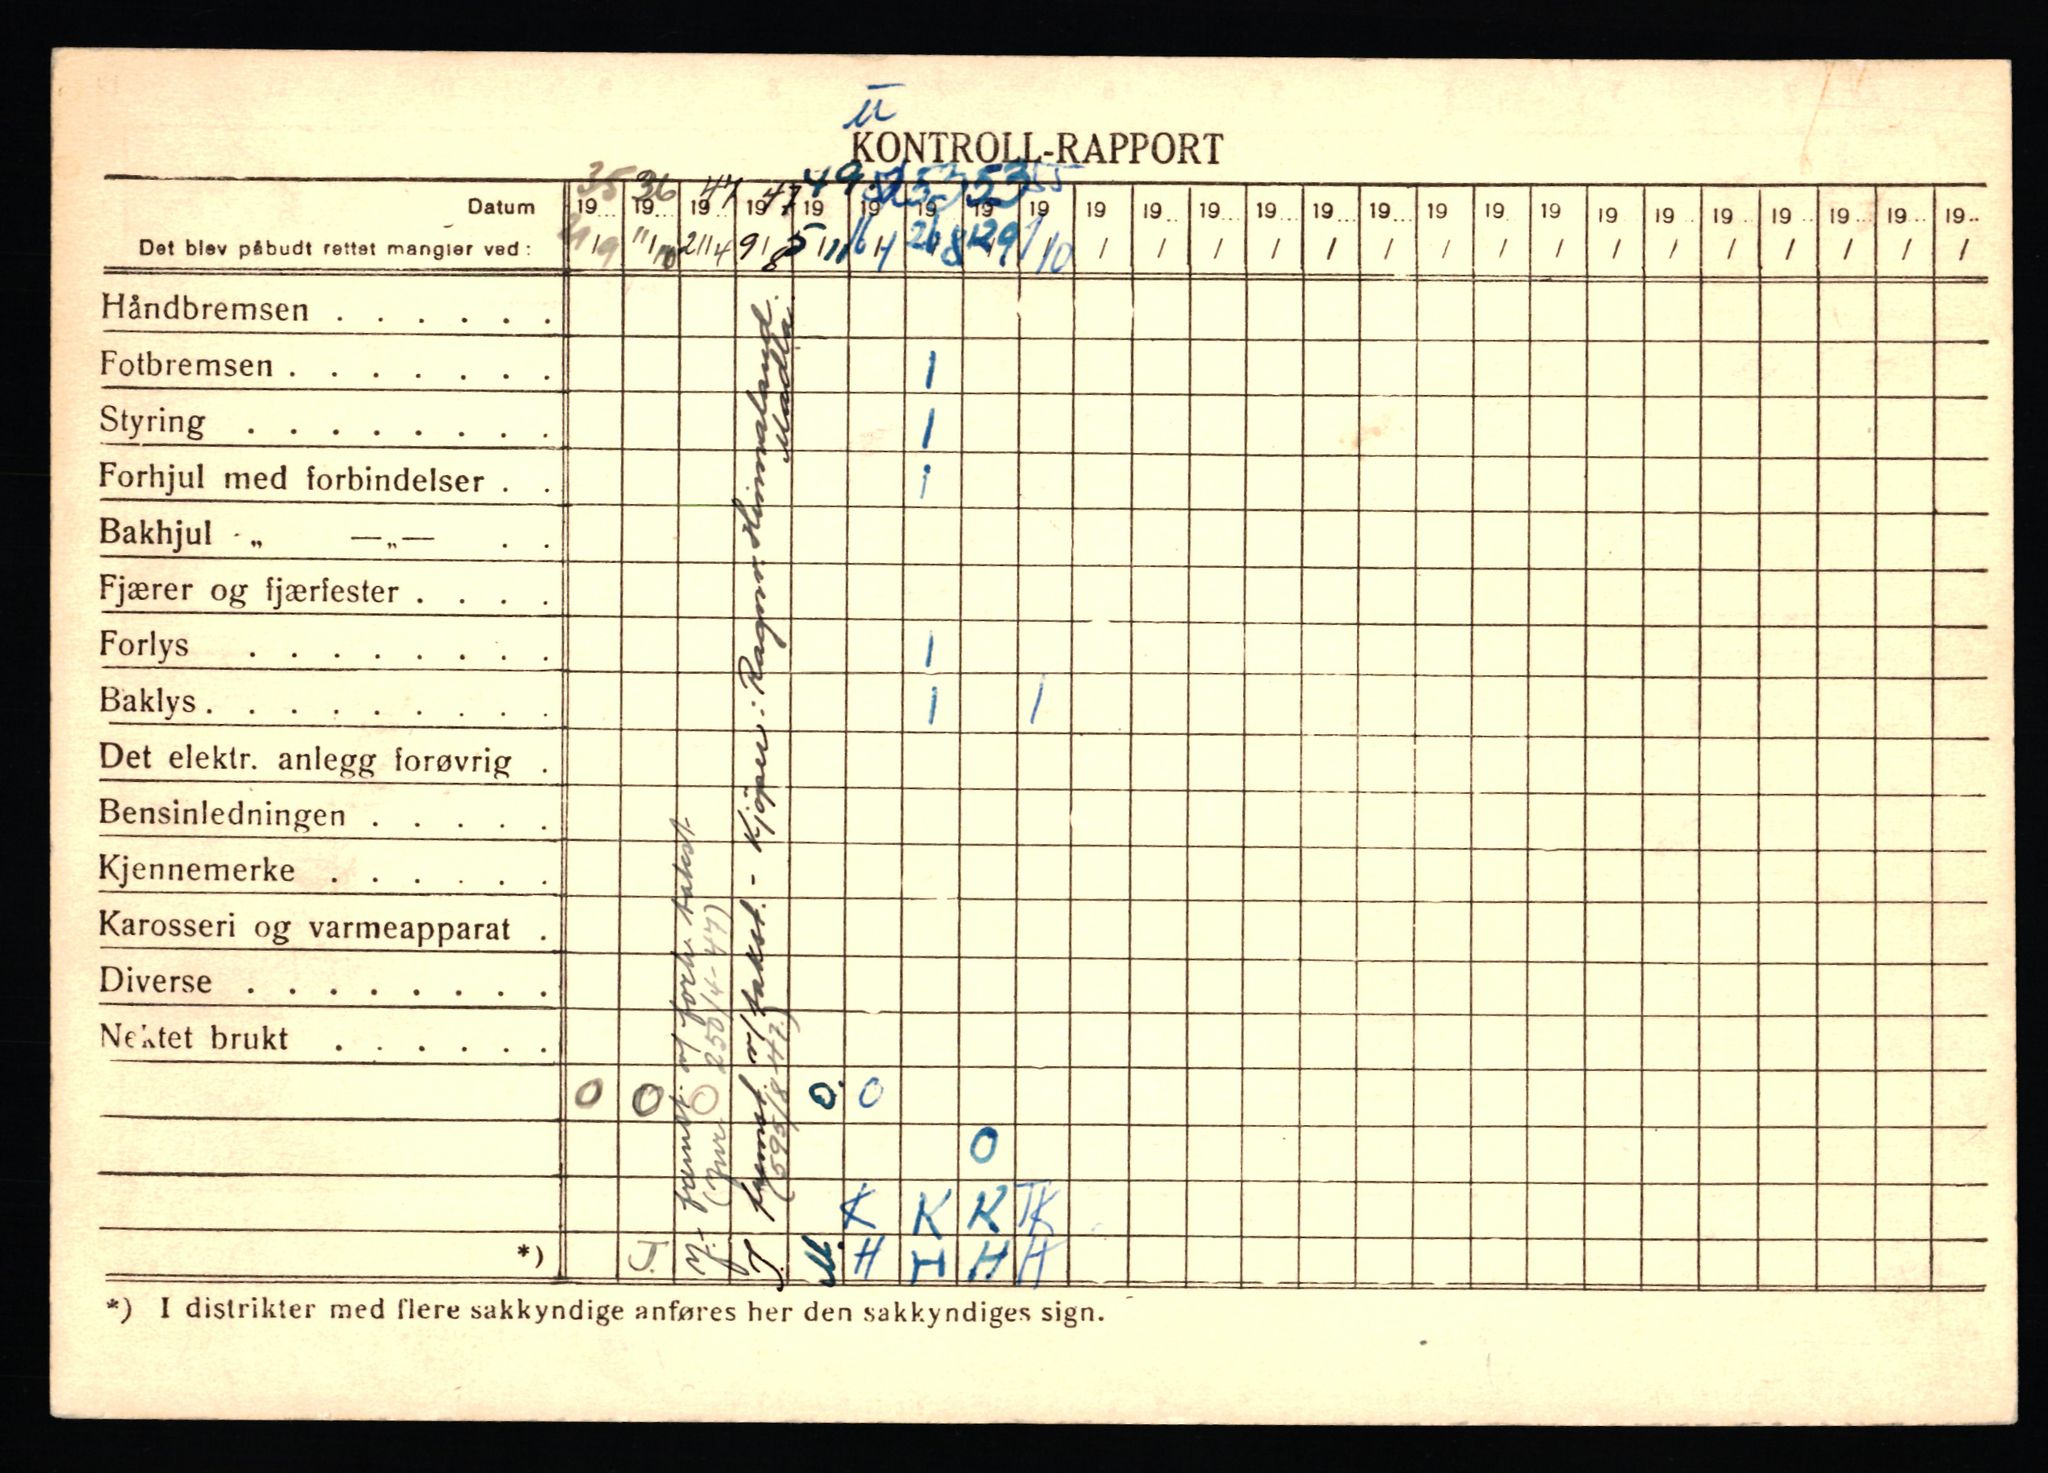 II
KONTROLL-RAPPORT
35 36 47 47 49 53 53 55
Datum 19... 19... 19... 19 19 19 19 19 19 19 19... 19... 19... 19... 19... 19 19 19 19... 19... 19... 19... 19... 19... 19..
Det blev påbudt rettet mangler ved: /9 11/10 21/4 9/8 5/11 16/4 26/8 12/9 1/10 / / / / / / / / / / / / / / / /
Håndbremsen . . . . . .
Fotbremsen . . . . . . . 1
Styring . . . . . . . . 1
Forhjul med forbindelser . . 1
Bakhjul „ —„— . .
Fjærer og fjærfester . . . .
Forlys . . . . . . . . 1
Baklys . . . . . . . . . 1 1
Det elektr. anlegg forøvrig .
Bensinledningen . . . . .
Kjennemerke . . . . . .
Karosseri og varmeapparat .
Diverse . . . . . . . .
Nektet brukt . . . . . .
O O O O. O
O
K K K TK
*) J. J. M. H H H H
fremst. v/ forh. takst
250/4-47)
fremst. v/ takst. - Kjöper: Ragnar Himmaland.
Madla.
(595/8-47.)
*) I distrikter med flere sakkyndige anføres her den sakkyndiges sign.